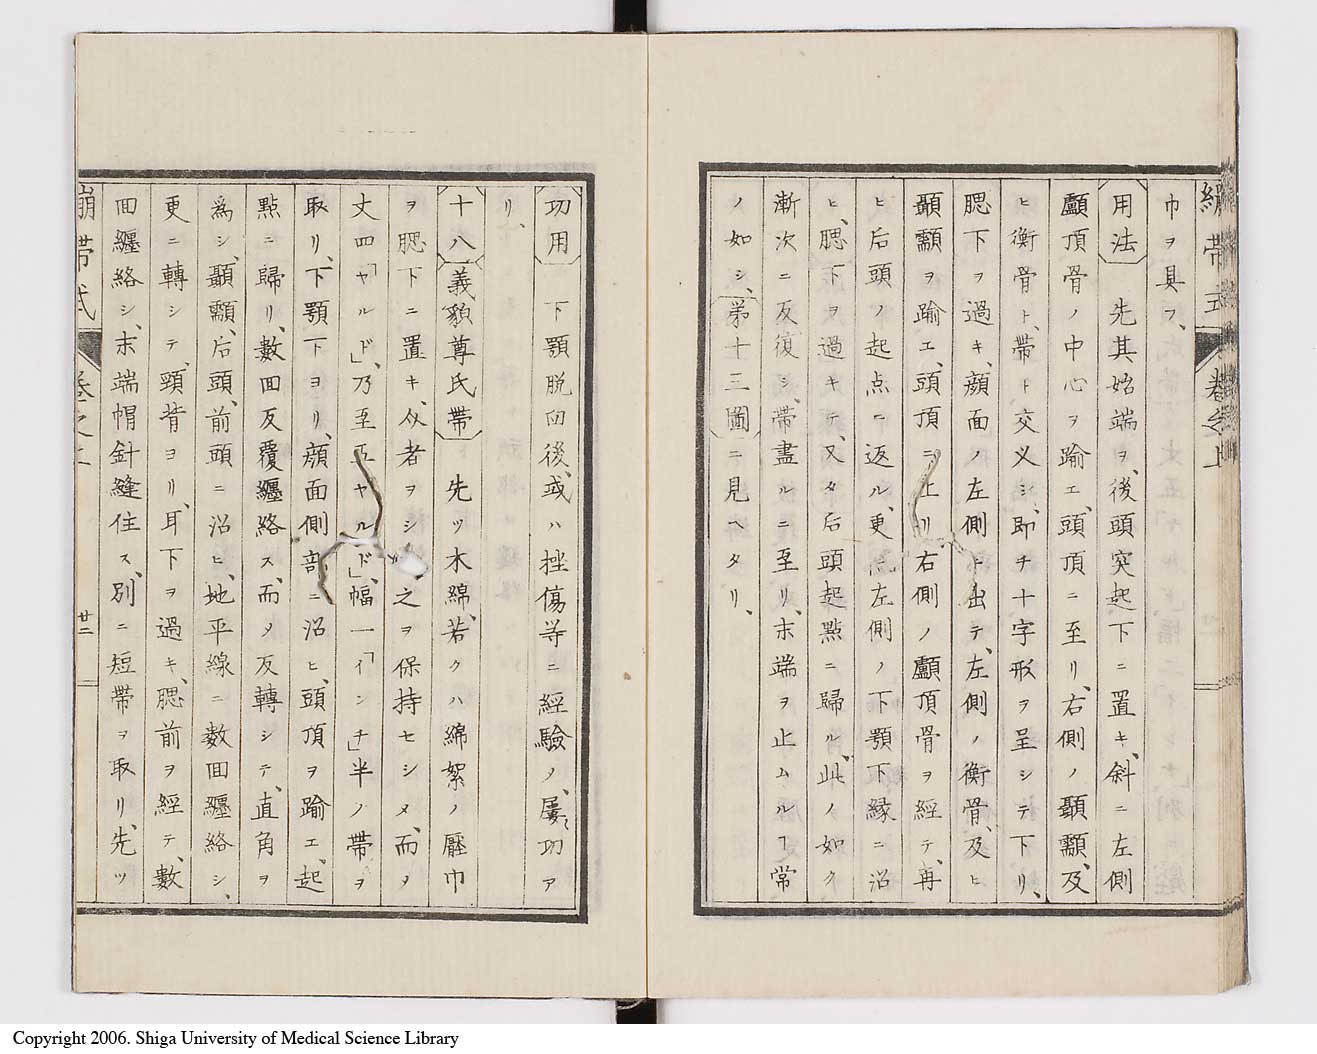 繃帶式 卷之上
巾ヲ具フ、
用法 先其始端ヲ、後頭突起下ニ置キ、斜ニ左側
顱頂骨ノ中心ヲ踰エ、頭頂ニ至リ、右側ノ顳顬、及
ヒ衡骨ト、帶ト交义シ、即チ十字形ヲ呈シテ下リ、
腮下ヲ過キ、顔面ノ左側ト出テ、左側ノ衡骨、及ヒ
顳顬ヲ踰エ、頭頂ニ上リ、右側ノ顱頂骨ヲ經テ、再
ヒ后頭ノ起点ニ返ル、更左側ノ下顎下縁ニ沿
ヒ、腮下ヲ過キテ、又タ后頭起點ニ歸ル、此ノ如ク
漸次ニ反復シ、帶盡ルニ至リ、末端ヲ止ムルヿ常
ノ如シ、第十三圖ニ見ヘタリ、
功用 下顎脱臼後、或ハ挫傷等ニ經驗ノ、屢〻功ア
リ、
十八 義貌尊氏帶 先ツ木綿、若クハ綿絮ノ壓巾
ヲ腮下ニ置キ、㕥者ヲシ之ヲ保持セシメ、而〆
丈四「ヤルド」、乃至五「ヤルド」、幅一「インチ」半ノ帶ヲ
取リ、下顎下ヨリ、顔面側部ニ沿ヒ、頭頂ヲ踰エ、起
點ニ歸リ、數回反覆纏絡ス、而〆反轉シテ、直角ヲ
爲シ、顳顬、后頭、前頭ニ沿ヒ、地平線ニ數回纏絡シ、
更ニ轉シテ、頸背ヨリ、耳下ヲ過キ、腮前ヲ經テ、數
回纏絡シ、末端帽針縫住ス、別ニ短帶ヲ取リ、先ツ
繃帶式 卷之上 廿二
Copyright 2006. Shiga University of Medical Science Library